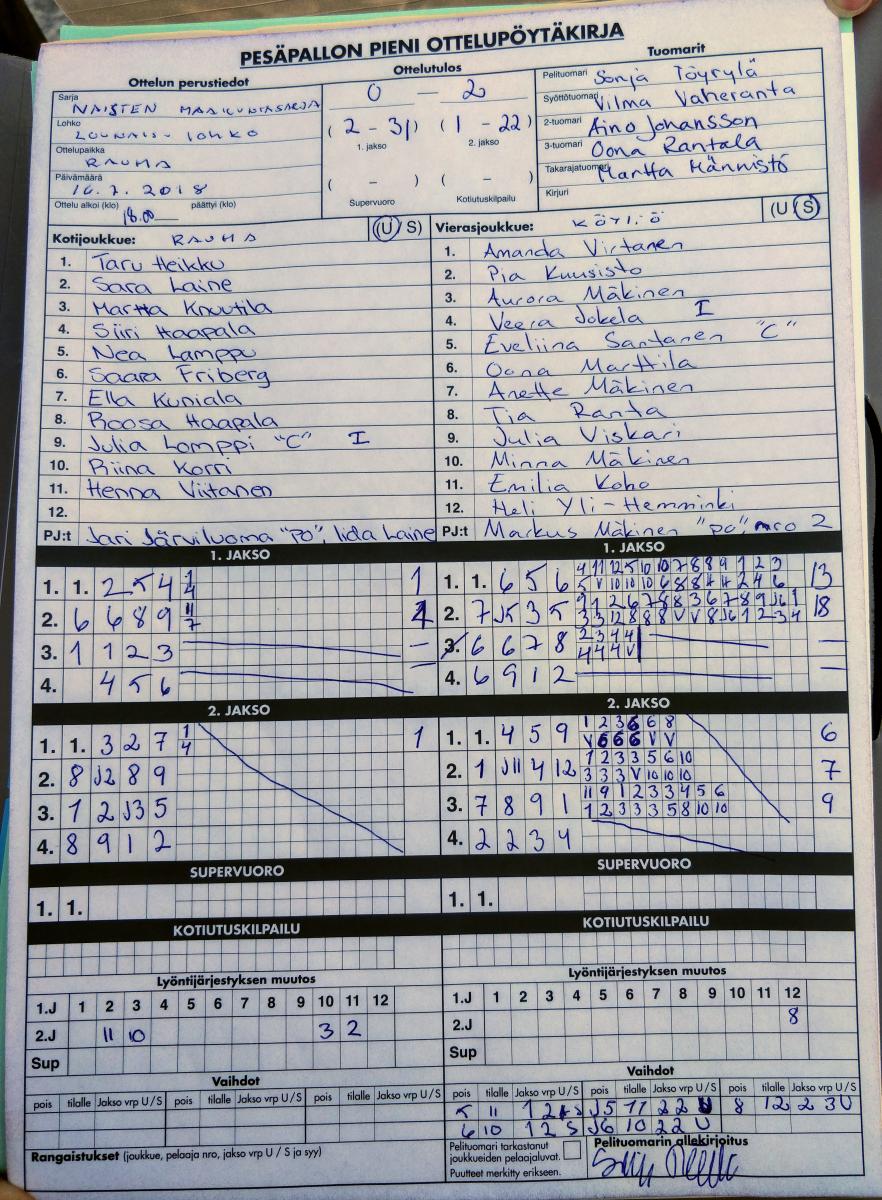 PESÄPALLON PIENI OTTELUPÖYTÄKIRJA
Ottelun perustiedot
Sarja NAISTEN MAAKUNTASARJA
Lohko LOUNAIS-LOHKO
Ottelupaikka RAUMA
Päivämäärä 16.7.2018
Ottelu alkoi (klo) 18.00 päättyi (klo)
Ottelutulos
0 - 2
(2 - 31) (1 - 22)
1. jakso 2. jakso
( - ) ( - )
Supervuoro Kotiutuskilpailu
Tuomarit
Pelituomari Sonja Töyrylä
Syöttötuomari Vilma Vaheranta
2-tuomari Aino Johansson
3-tuomari Oona Rantala
Takarajatuomari Martta Männistö
Kirjuri
Kotijoukkue: RAUMA (U S)
1. Taru Heikku
2. Sara Laine
3. Martta Knuutila
4. Siiri Haapala
5. Nea Lamppu
6. Saara Friberg
7. Ella Kuniala
8. Roosa Haapala
9. Julia Lomppi "C" I
10. Riina Korri
11. Henna Viitanen
12.
PJ:t Jari Järviluoma "PO", Iida Laine
Vierasjoukkue: KÖYLIÖ (U S)
1. Amanda Virtanen
2. Pia Kuusisto
3. Aurora Mäkinen
4. Veera Jokela I
5. Eveliina Santanen "C"
6. Oona Marttila
7. Anette Mäkinen
8. Tia Ranta
9. Julia Viskari
10. Minna Mäkinen
11. Emilia Koho
12. Heli Yli-Hemminki
PJ:t Markus Mäkinen "PO", nro 2
1. JAKSO
1. 1. 2 5 4 1 4 1
2. 6 6 8 9 11 7 1
3. 1 1 2 3 –
4. 4 5 6
2. JAKSO
1. 1. 3 2 7 1 4 1
2. 8 J2 8 9
3. 1 2 J3 5
4. 8 9 1 2
SUPERVUORO
1. 1.
KOTIUTUSKILPAILU
Lyöntijärjestyksen muutos
1.J 1 2 3 4 5 6 7 8 9 10 11 12
2.J 11 10 3 2
Sup
Vaihdot
pois tilalle Jakso vrp U / S pois tilalle Jakso vrp U / S pois tilalle Jakso vrp U / S
Rangaistukset (joukkue, pelaaja nro, jakso vrp U / S ja syy)
1. JAKSO
1. 1. 6 5 6 4 11 12 5 10 10 7 8 8 9 1 2 3 13
5 V 10 10 10 6 8 8 4 4 2 4 6
2. 7 J5 3 5 9 1 2 6 7 8 8 3 6 7 8 9 J6 1 18
3 3 12 8 8 8 V V 8 J6 1 2 3 4
3. 6 6 7 8 2 3 4 4 –
4 4 4 V
4. 6 9 1 2 –
2. JAKSO
1. 1. 4 5 9 1 2 3 6 6 8 6
V 6 6 6 V V
2. 1 J11 4 12 1 2 3 3 5 6 10 7
3 3 3 V 10 10 10
3. 7 8 9 1 11 9 1 2 3 3 4 5 6 9
1 2 3 3 3 5 8 10 10
4. 2 2 3 4
SUPERVUORO
1. 1.
KOTIUTUSKILPAILU
Lyöntijärjestyksen muutos
1.J 1 2 3 4 5 6 7 8 9 10 11 12
2.J 8
Sup
Vaihdot
pois tilalle Jakso vrp U / S pois tilalle Jakso vrp U / S pois tilalle Jakso vrp U / S
5 11 1 2 S J5 11 2 2 U 8 12 2 3 U
6 10 1 2 S J6 10 2 2 U
Pelituomari tarkastanut
joukkueiden pelaajaluvat.
Puutteet merkitty erikseen.
Pelituomarin allekirjoitus